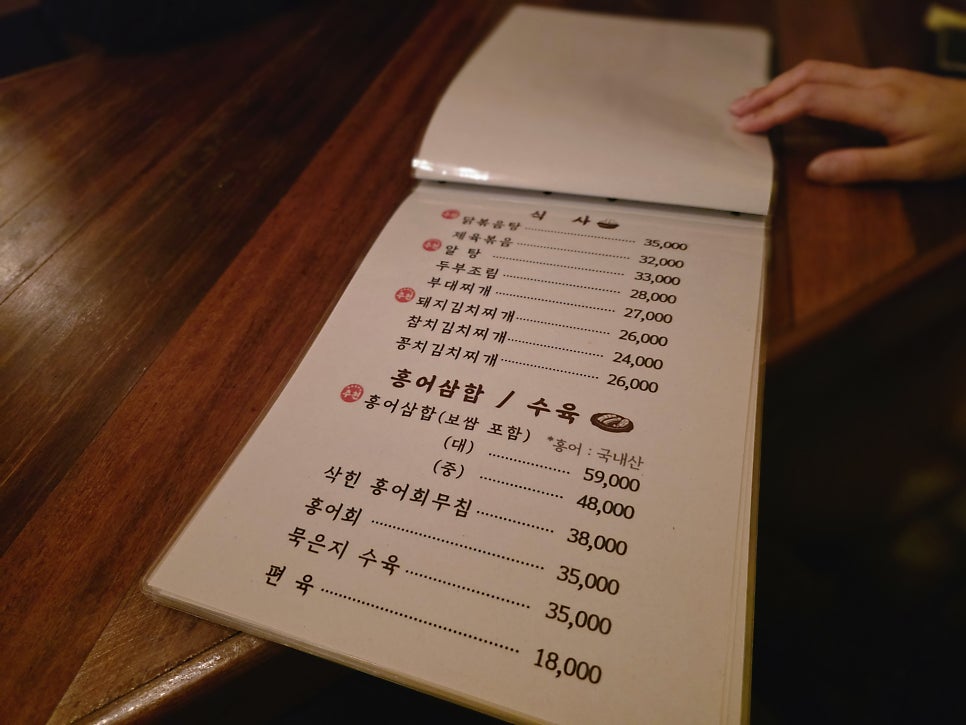 식 사
추천 닭볶음탕 35,000
제육볶음 32,000
추천 알 탕 33,000
두부조림 28,000
부대찌개 27,000
추천 돼지김치찌개 26,000
참치김치찌개 24,000
꽁치김치찌개 26,000
홍어삼합 / 수육
추천 홍어삼합(보쌈 포함) *홍어 : 국내산
(대) 59,000
(중) 48,000
삭힌 홍어회무침 38,000
홍어회 35,000
묵은지 수육 35,000
편 육 18,000